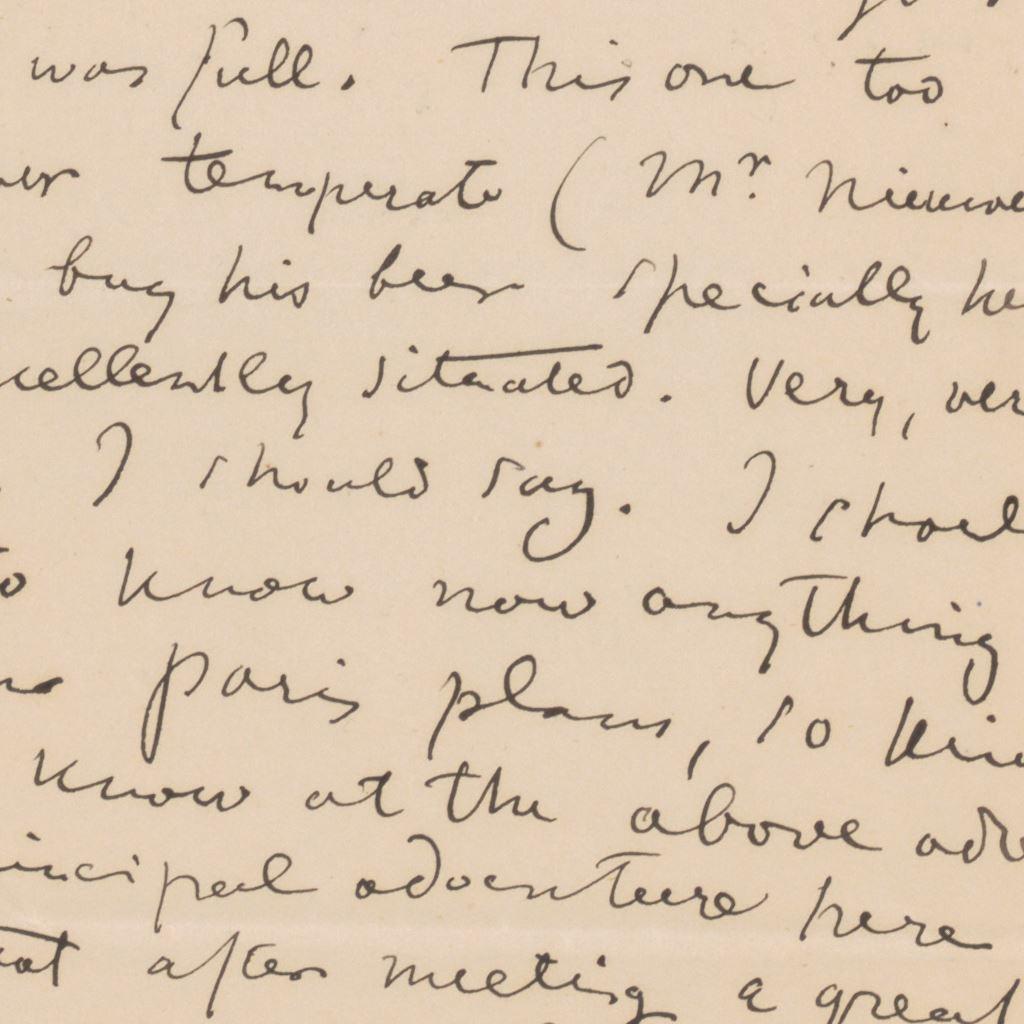 was full. This one too
temperate (Mr. Nieuwe
buy his beer specially he
cellently situated. Very, ver
I should say. I shoul
to know now anything
Paris plans, so kin
know at the above adr
incipal adventure here
at after meeting a great